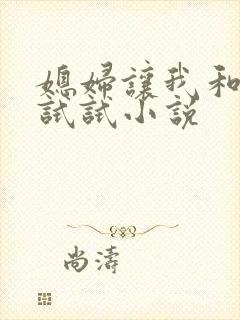 媳婦讓我和
試試小説
尚濤